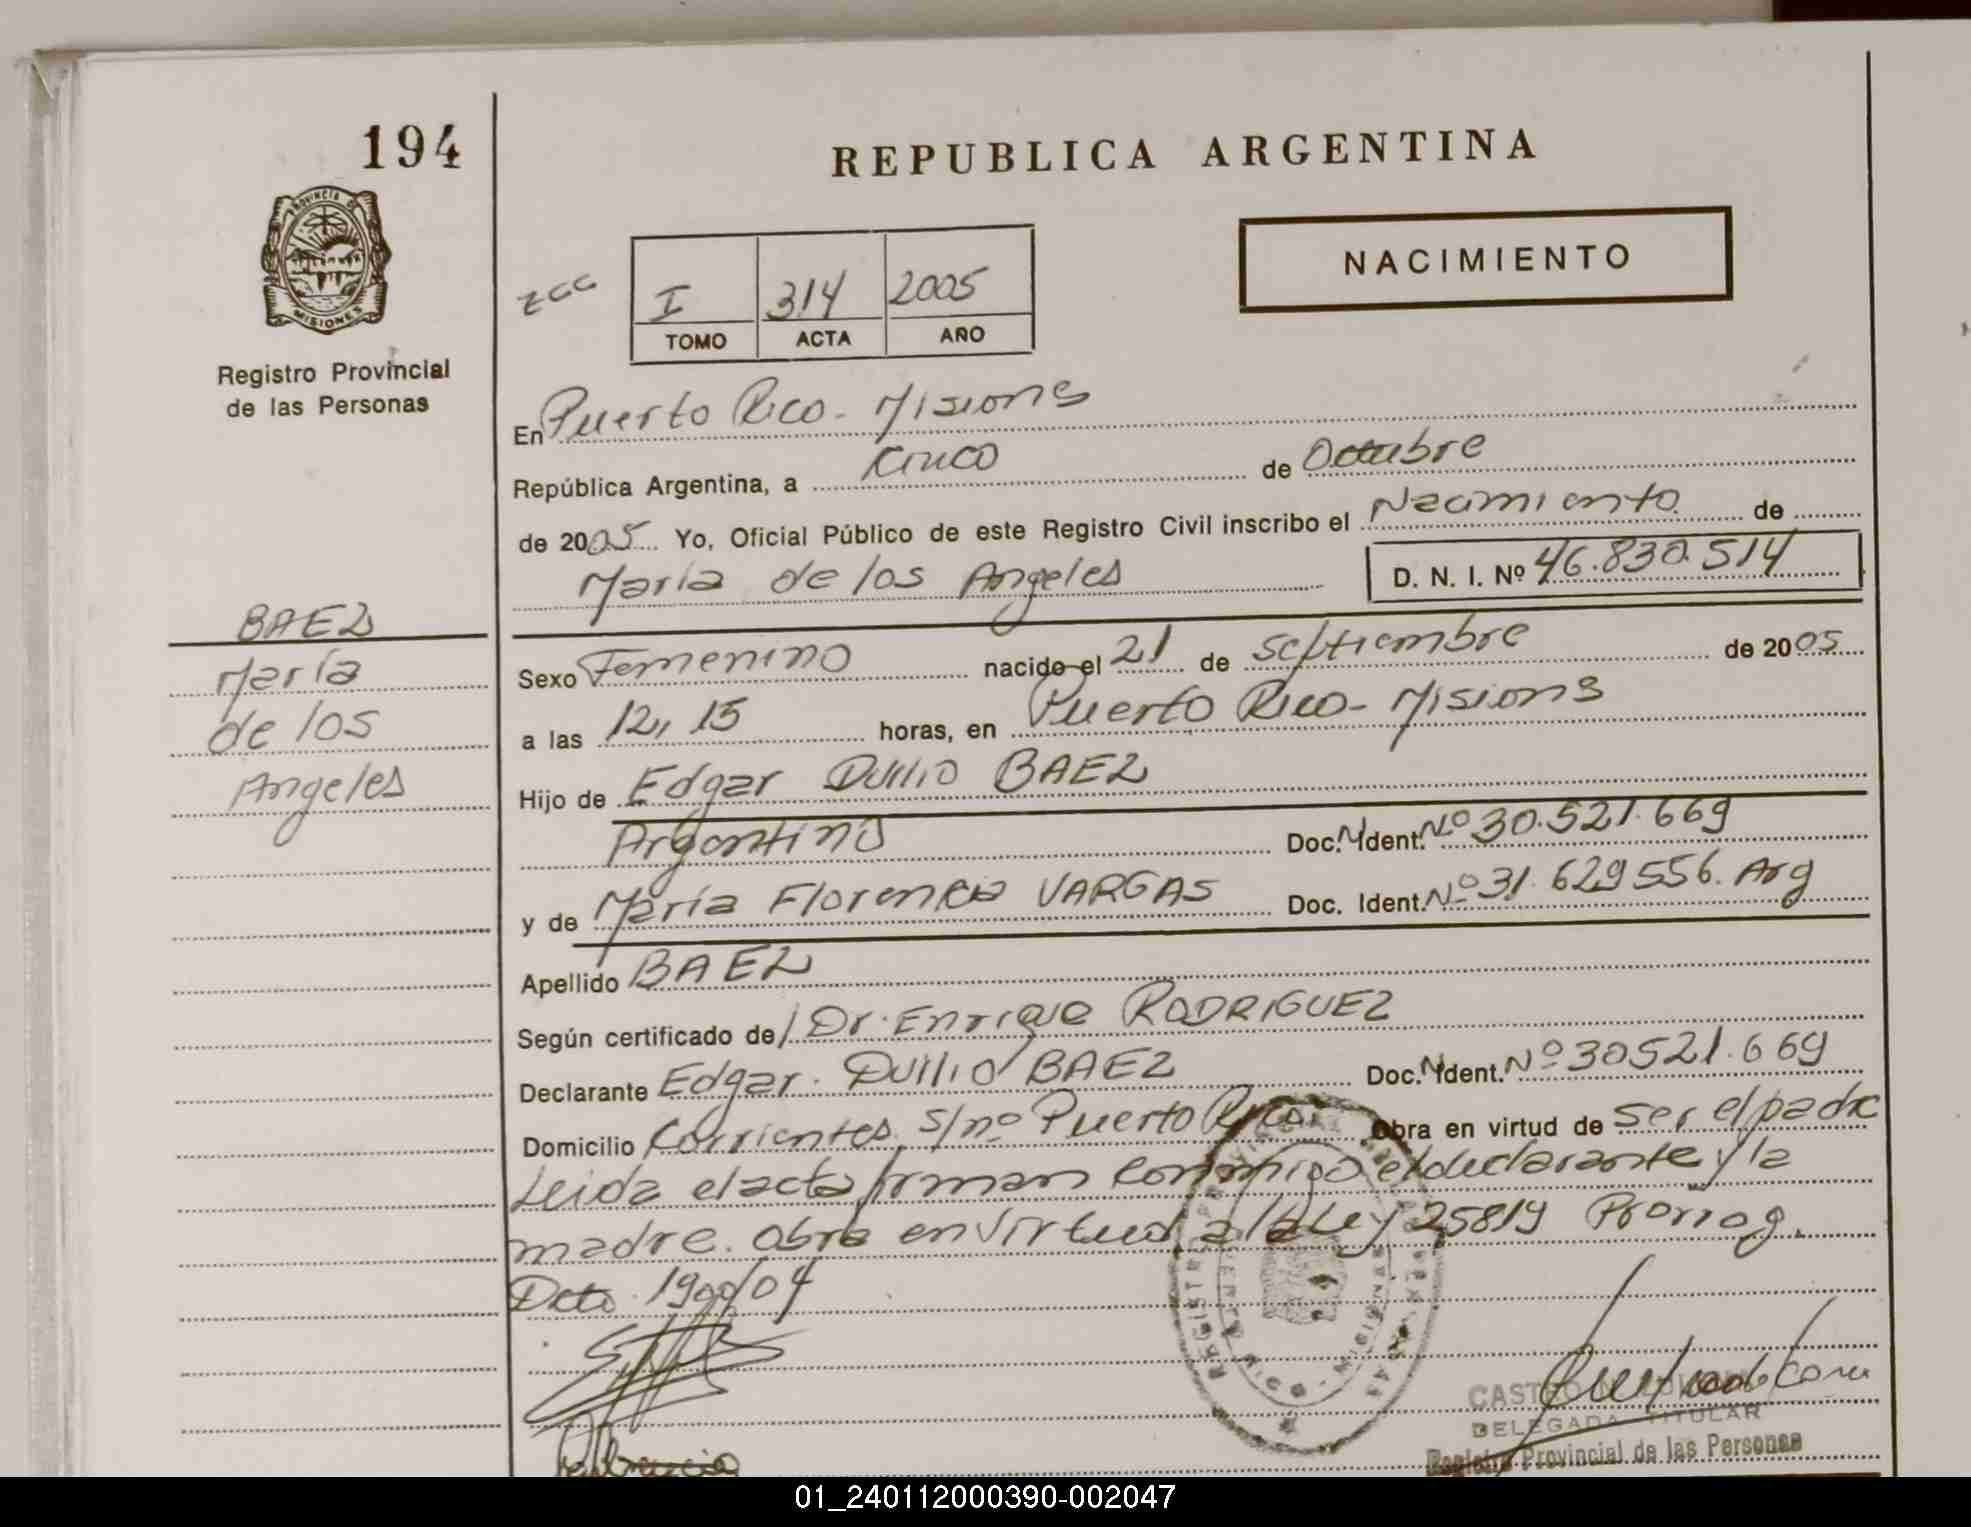 194
REPUBLICA ARGENTINA
PROVINCIA DE
MISIONES
Registro Provincial
de las Personas
NACIMIENTO
I 314 2005
TOMO ACTA AÑO
En Puerto Rico - Misiones
República Argentina, a Cinco de Octubre
de 2005 Yo, Oficial Público de este Registro Civil inscribo el Nacimiento de
María de los Angeles D. N. I. Nº 46.830.514
BAEZ
María
de los
Angeles
Sexo Femenino nacido el 21 de septiembre de 2005
a las 12,15 horas, en Puerto Rico - Misions
Hijo de Edgar Duilio BAEZ
Argentino Doc. N. Ident. Nº 30.521.669
y de María Florencia VARGAS Doc. Ident. Nº 31.629556. Arg
Apellido BAEZ
Según certificado de Dr. Enrique RODRIGUEZ
Declarante Edgar. Duilio BAEZ Doc. N. Ident. Nº 30521.669
Domicilio Corrientes s/nº Puerto Rico. Obra en virtud de ser el padre
Leida el acta firman conmigo el declarante y la
madre. Obra en virtud a la Ley 25819 Prorrog.
Dcto. 1990/04
DELEGADA TITULAR
Registro Provincial de las Personas
01_240112000390-002047